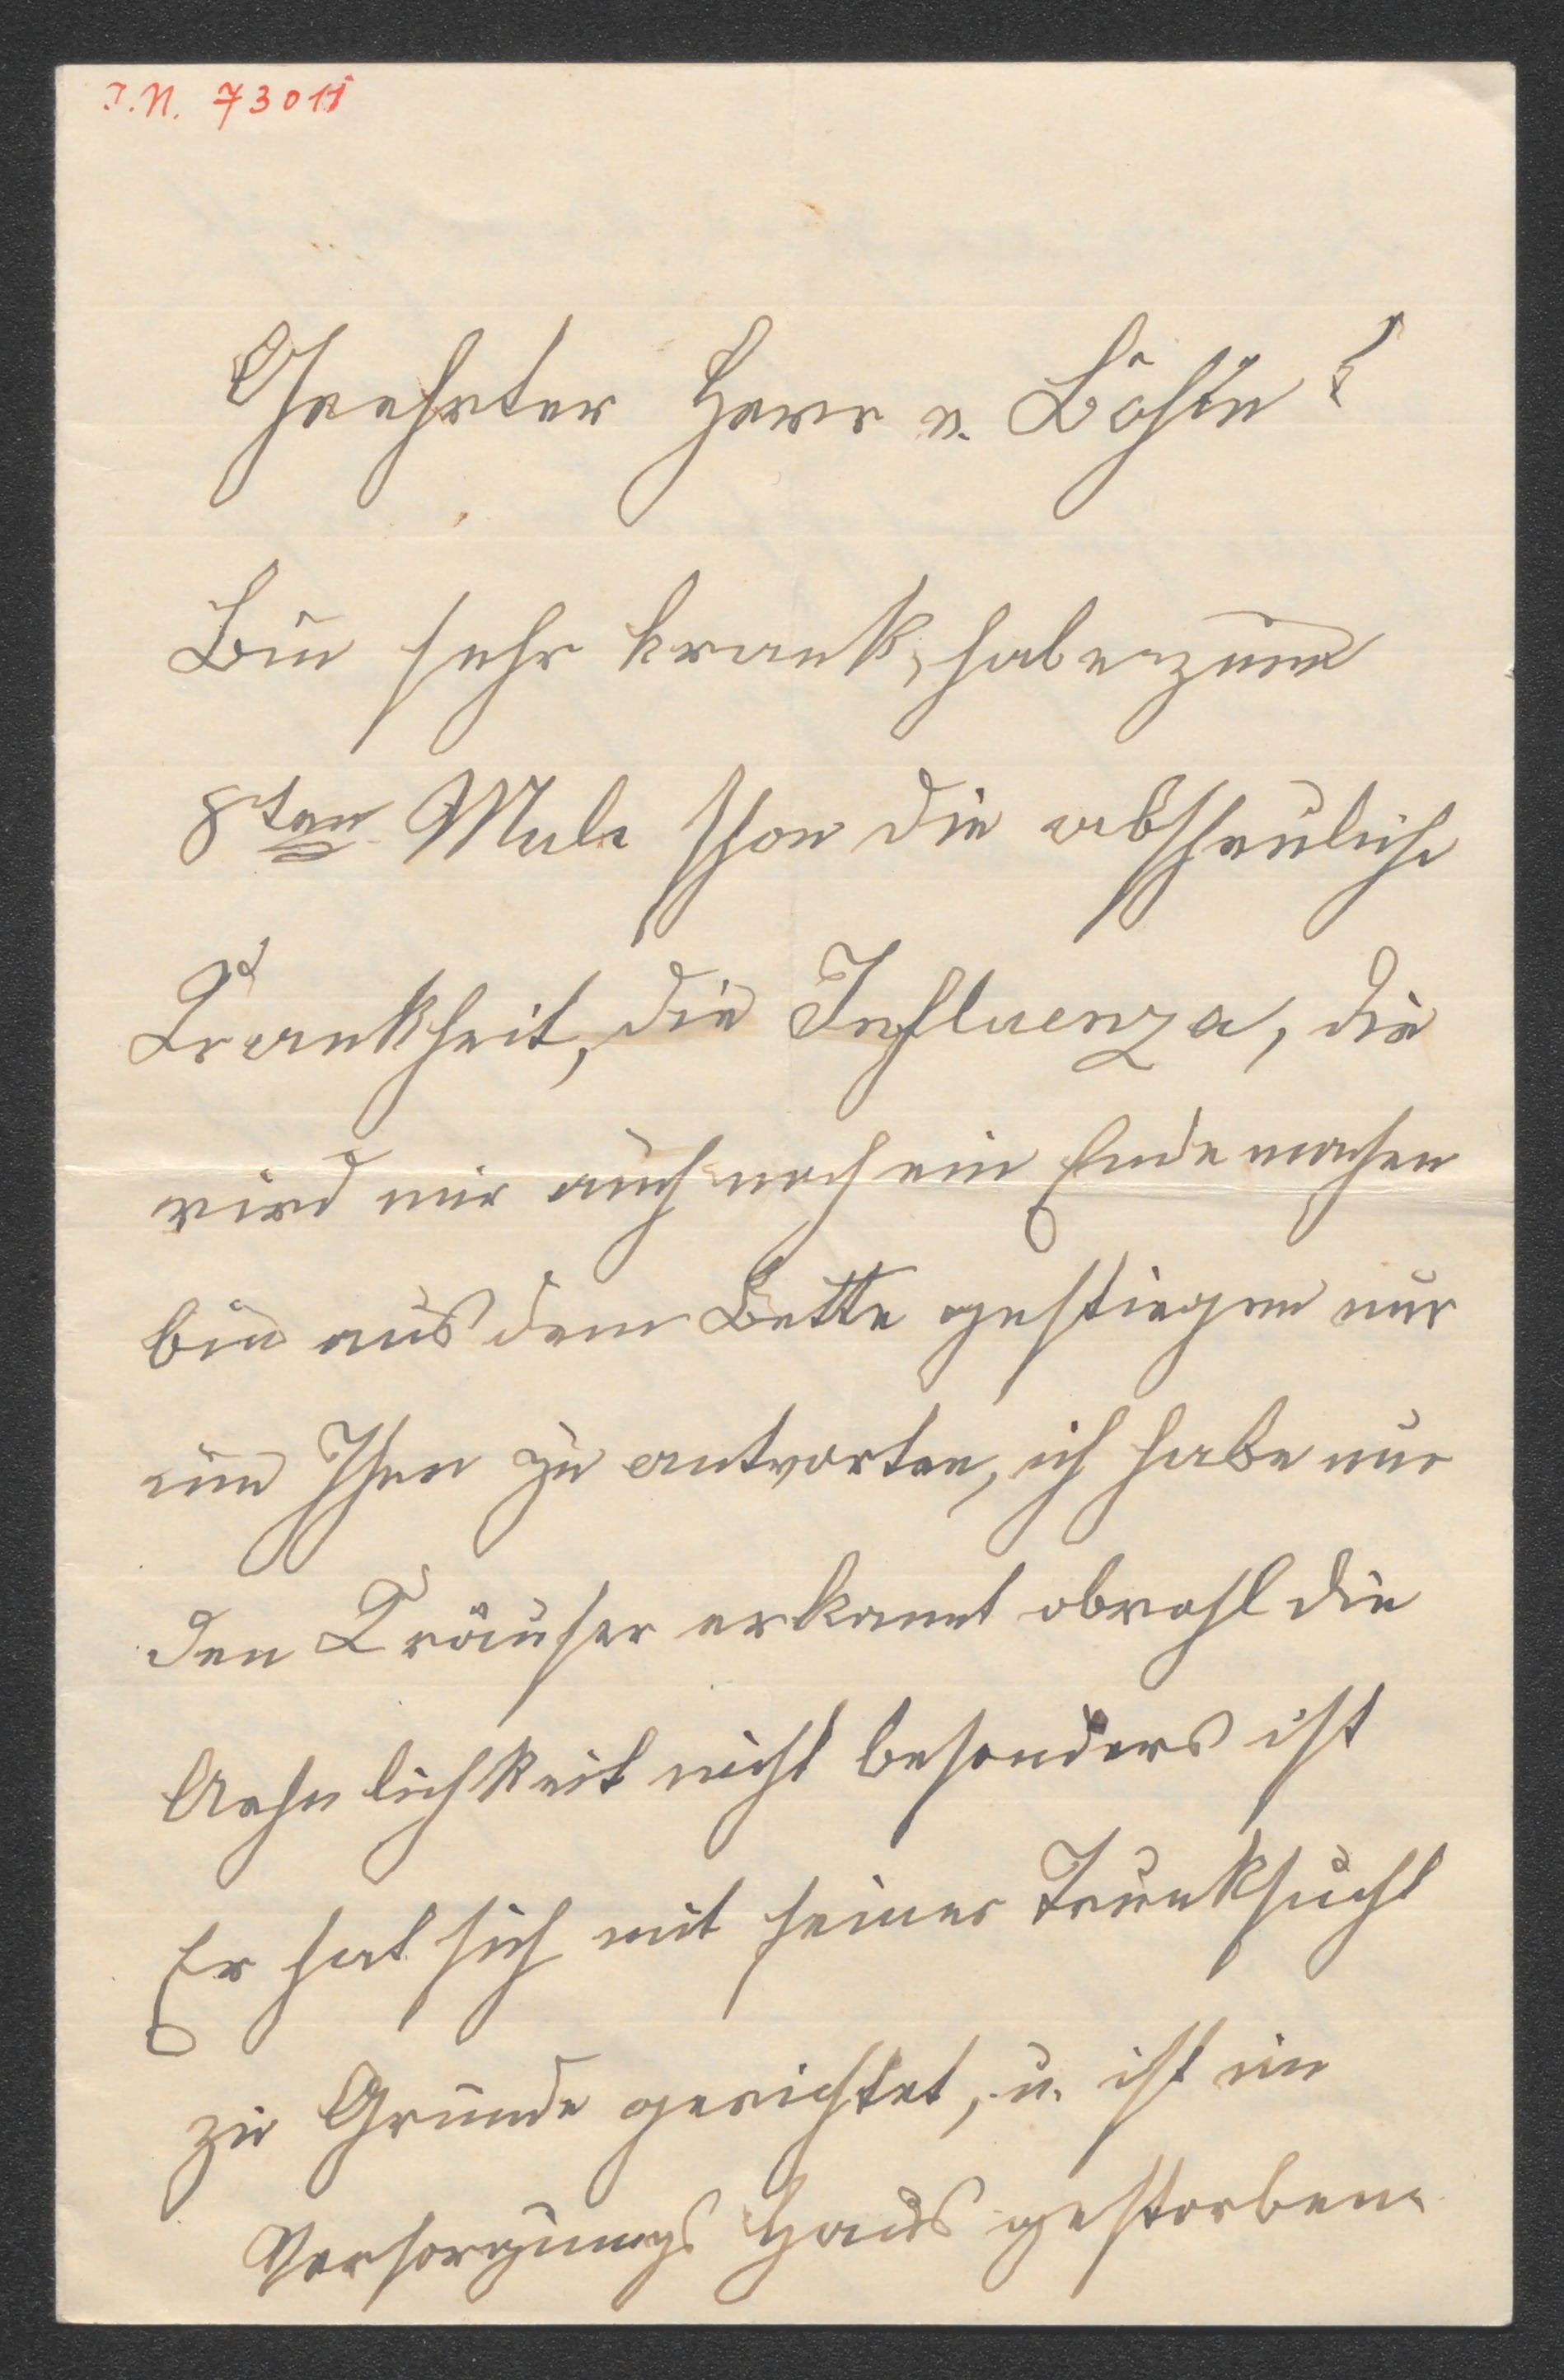 I.N. 73011
Geehrter Herr v. Böhm!
Bin sehr krank, habe zum
8ten Male schon die abscheuliche
Krankheit, die Influenza, die
wird mir auch noch ein Ende machen
bin aus dem Bette gestiegen nur
um Ihnen zu antworten, ich habe nur
den Kräuser erkannt obwohl die
Aehnlichkeit nicht besonders ist
Er hat sich mit seiner Trunksucht
zu Grunde gerichtet, u. ist im
Versorgungs Haus gestorben.